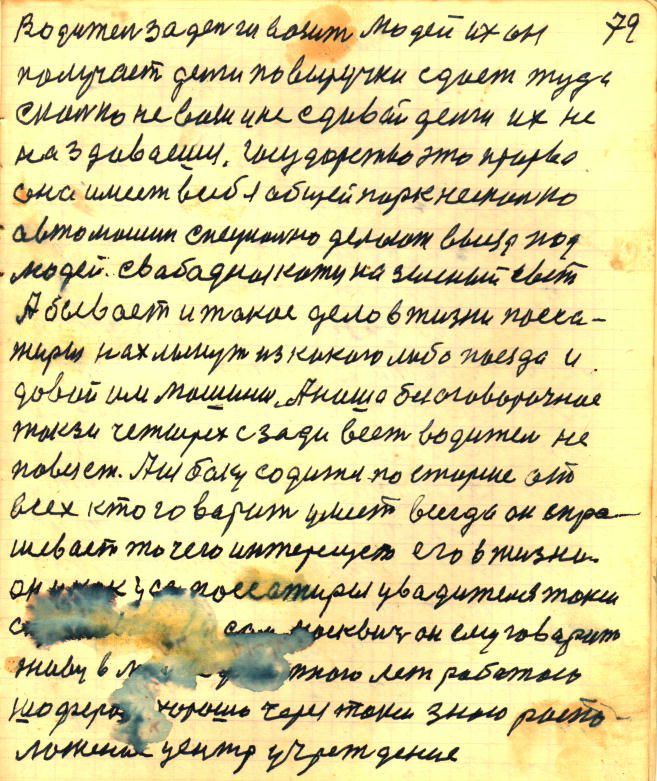 Водител за денги возит людей их он 79
получает денги по выручки сдает туда
сколко не вози и не сдавай денги их не
на здаваеши. государство это прорва
она имеет в себя общей парк несколко
автомошин специолно делают выезд под
людей. свабадная кожи на зеленый свет
А бывает и такое дело в жизни посса-
жиры нахлынут из какого либо поезда и
довай им машины. А наша безоговорочное
такзи четырех сзади веет водител не
повезет. А сбоку содится по старие
всех кто говарит умеет всегда он спра-
шевает то чего интересуто его в жизни.
он поссажиры у вадителя токси
сам москвич он ему говарит
живу в много лет работаю
шофером хорошо через токси знаю распо-
ложение центр учреждение